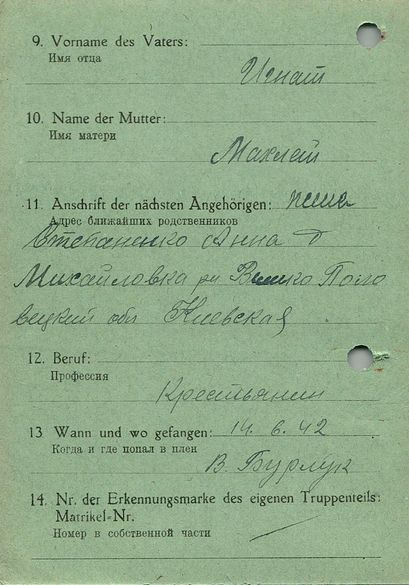 9. Vorname des Vaters:
Имя отца
Игнат
10. Name der Mutter:
Имя матери
11. Anschrift der nächsten Angehörigen: жена
Адрес ближайших родственников
Степаненко Анна д
Михайловка рн Велико Поло
вецкий обл Киевская
12. Beruf:
Профессия
Крестьянин
13 Wann und wo gefangen: 14. 6. 42
Когда и где попал в плен
В. Бурлук
14. Nr. der Erkennungsmarke des eigenen Truppenteils:
Matrikel-Nr.
Номер в собственной части